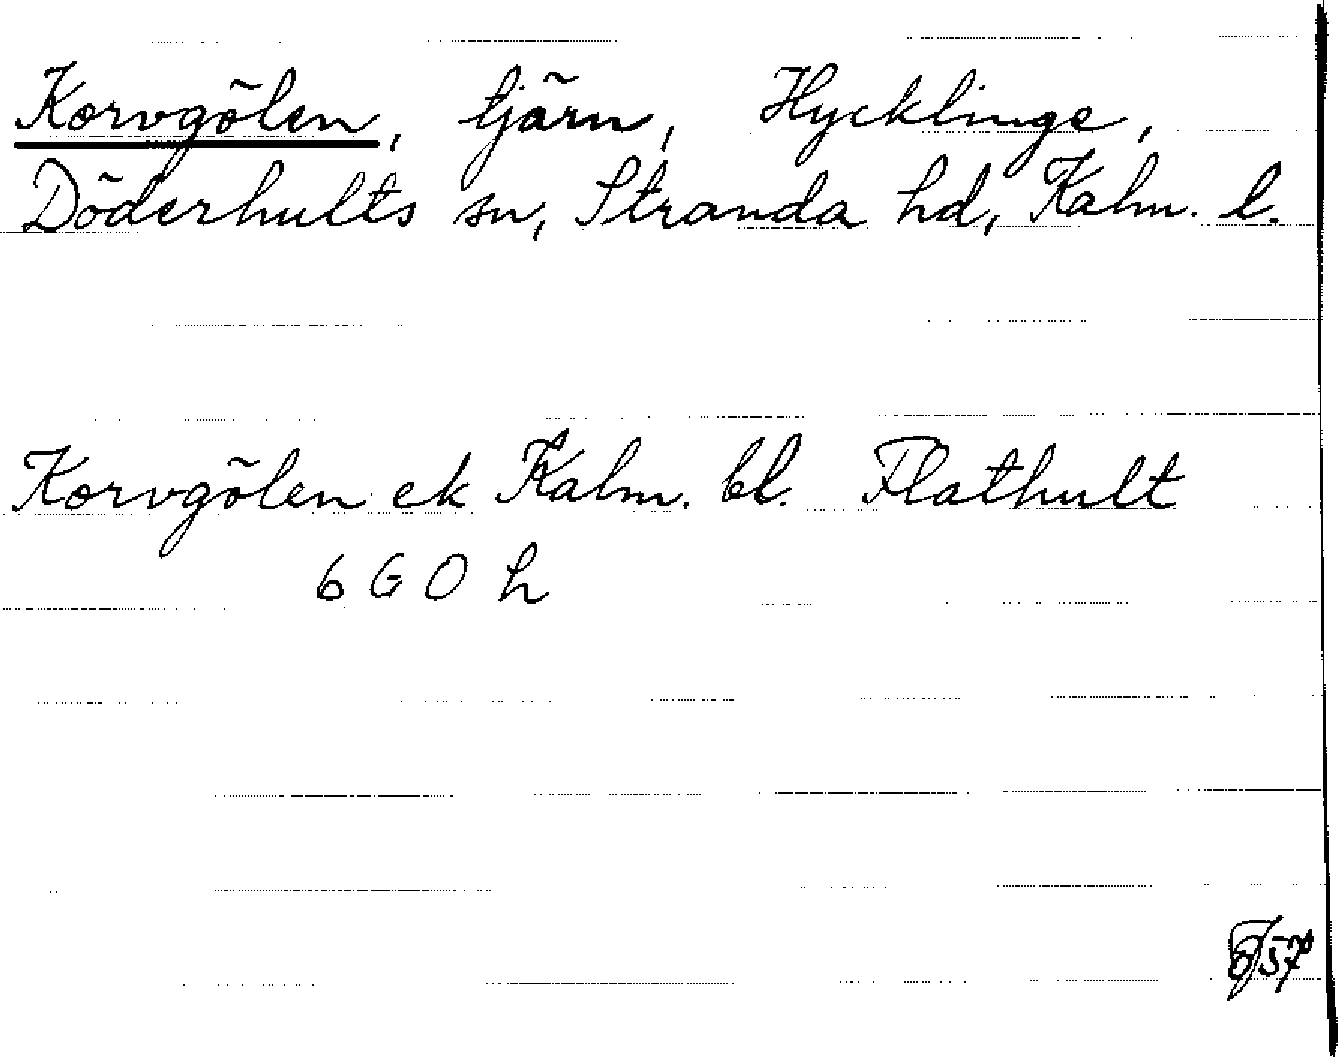 Korvgölen, tjärn, Hycklinge,
Döderhults sn, Stranda hd, Kalm. l.
Korvgölen ek Kalm. bl. Flathult
6 G O h